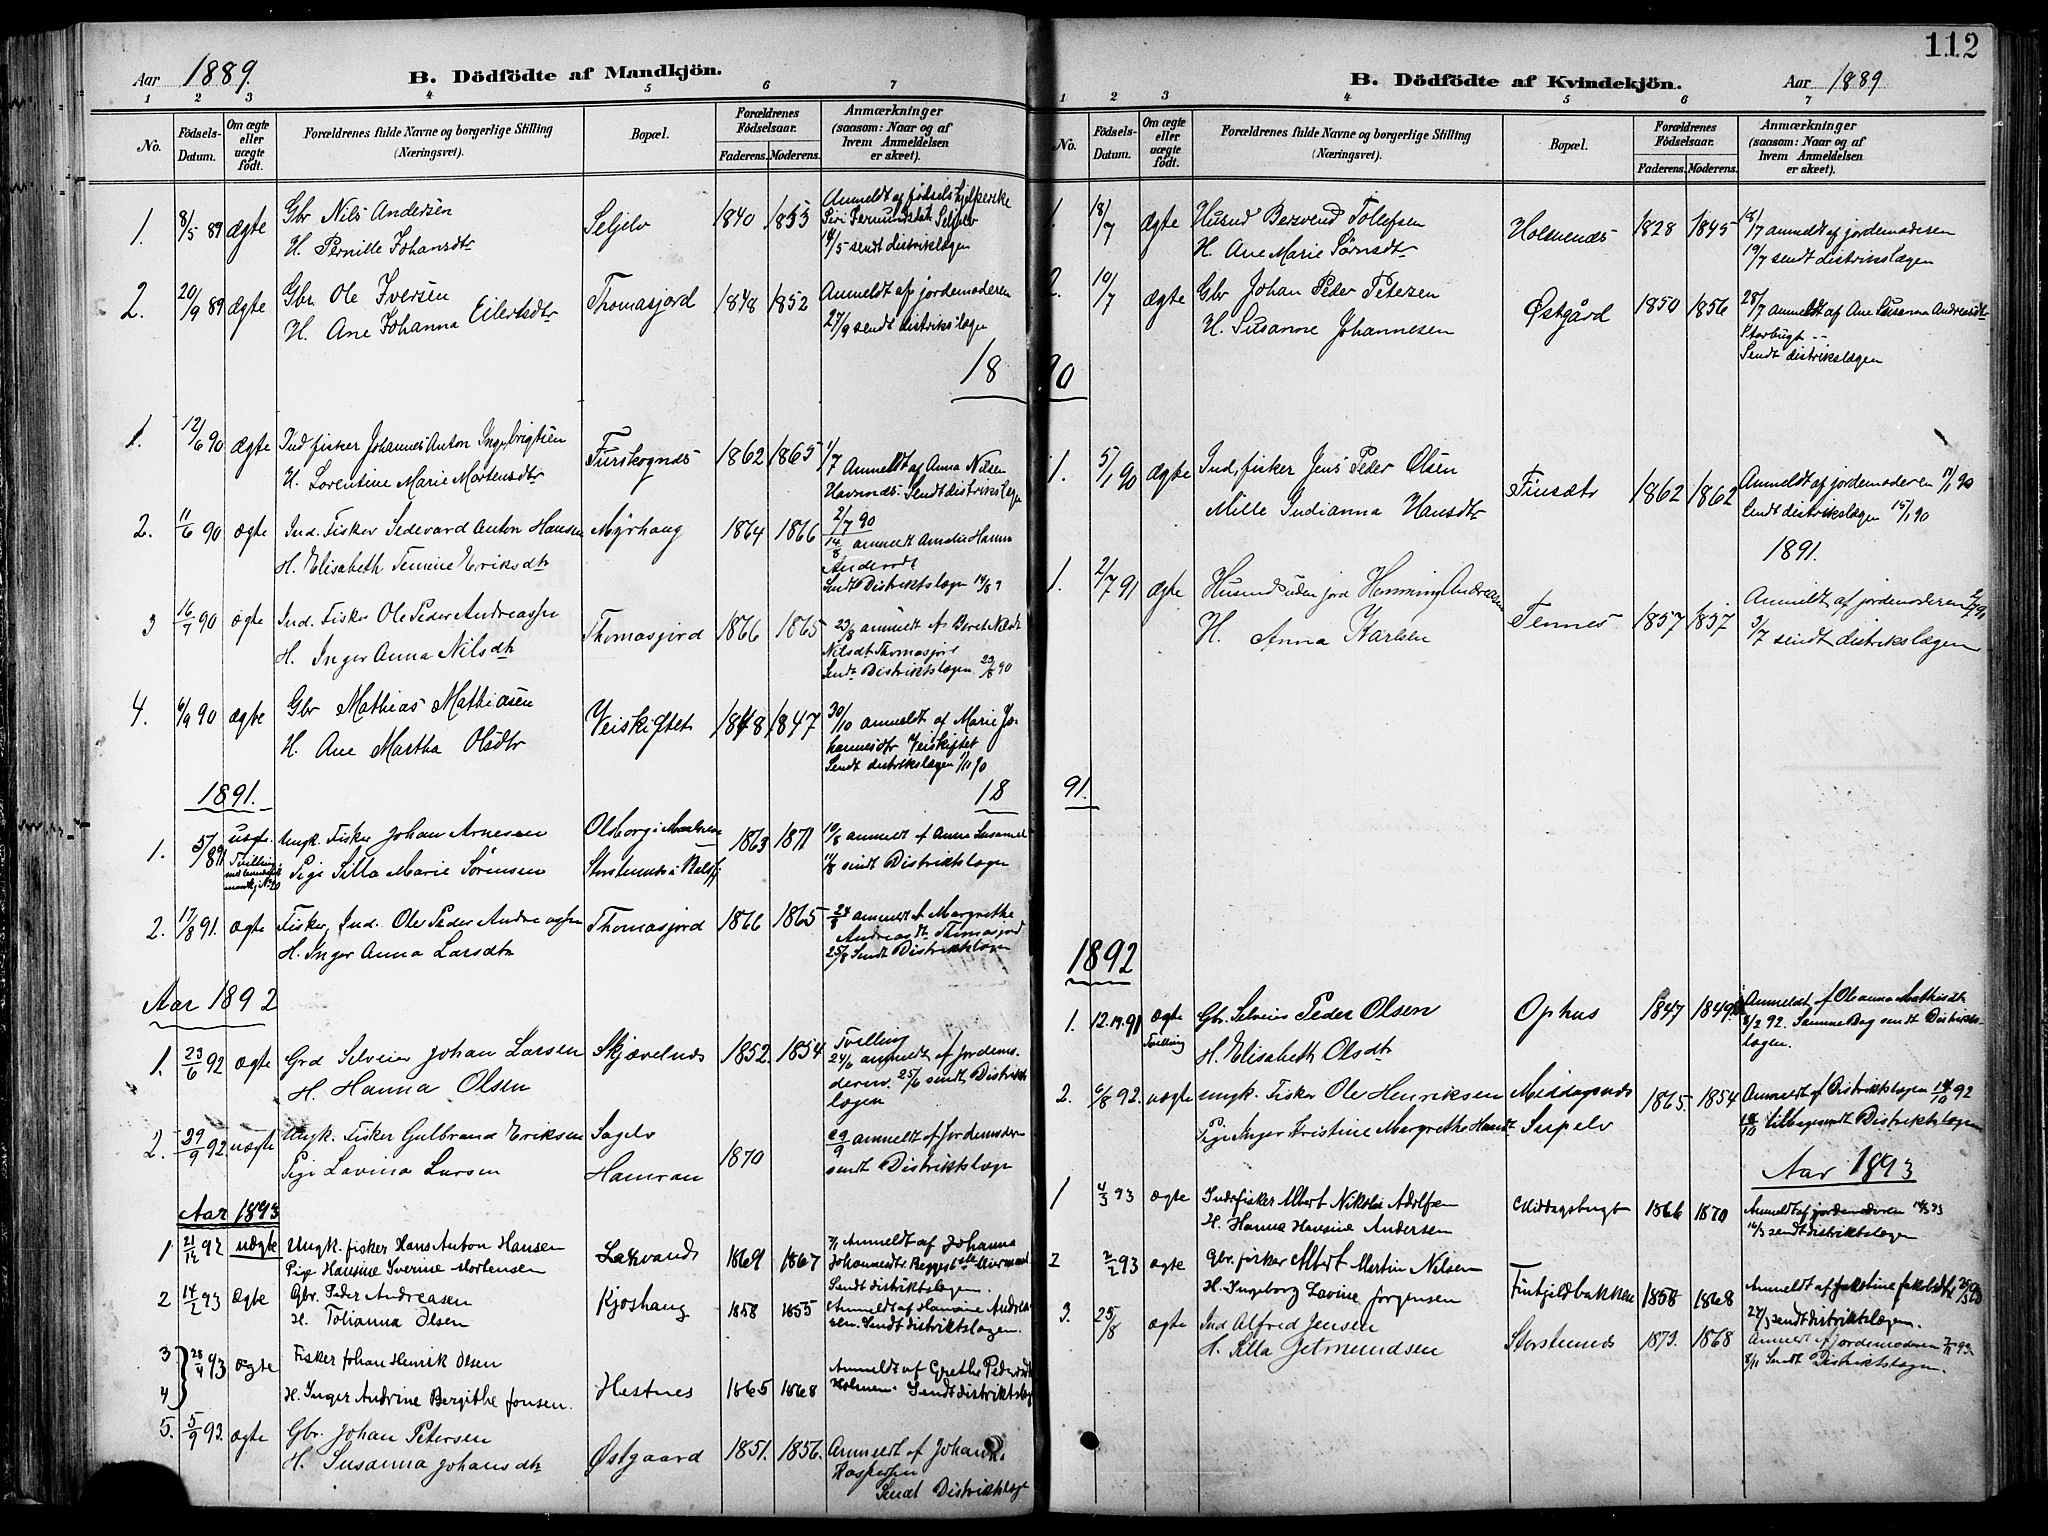 Aar 1889.
B. Dödfödte af Mandkjön.
1 2 3 4 5 6 7
No.
Födsels-Datum.
Om ægte eller uægte födt.
Forældrenes fulde Navne og borgerlige Stilling
(Næringsvei).
Bopæl.
Forældrenes Födselsaar.
Faderens. Moderens.
Anmærkninger
(saasom: Naar og af
hvem Anmeldelsen
er skeet).
1. 8/5 89 ægte Gbr Nils Andersen Seljelv 1840 1853 Anmeldt af fødselshjelperske
H. Pernille Johansdtr
14/5 sendt distriktslægen
2. 20/9 89 ægte Gbr. Ole Iversen Thomasjord 1848 1852 Anmeldt af jordemoderen
H. Ane Johanna Eilertsdtr 27/9 sendt distrikslægen
18
1. 12/6 90 ægte Ind fisker Johannes Anton Ingebrigtsen Furskognes 1862 1865 1/7 Anmeldt af Anna Nilsen
H. Lorentine Marie Mortensdtr Havnnæs. Sendt distrikslægen
2. 11/6 90 ægte Ind. Fisker Sedevard Anton Hansen Myrhaug 1864 1866 2/7 90
14/8 anmeldt Amalie Hanna
H. Elisabeth Temine Eriksdtr
Sendt Distriktslægen 14/8 9
3 16/7 90 ægte Ind. Fisker Ole Peder Andreassen Thomasjord 1866 1865 23/8 anmeldt af Beret
H. Inger Anna Nilsdtr Nilsdt Thomasjord
Sendt Distriktslægen 23/8 90
4. 6/9 90 ægte Gbr Mathias Mathiasen Veiskiftet 1848 1847 30/10 anmeldt af Marie Jo-
H. Ane Martha Olsdtr hannesdtr Veiskiftet
Sendt distrikslægen 1/11 90
1891. 18
1. 5/8 91 uægte. Ungk. Fisker Johan Arnesen Olsborg i Maalselv 1863 1871 10/8 anmeldt af Anna
Tvilling Pige Silla Marie Sörensen Storstennes i Balsfj 11/8 sendt Distriktslægen
2. 17/8 91. ægte Fisker, Ind. Ole Peder Andreassen Thomasjord 1866 1865 24/8 anmeldt af Margrethe
H. Inger Anna Larsdtr Andreasdt. Thomasjord
25/8 Sendt Distriktslægen
Aar 1892
1. 23/6 92 ægte Grd Selveier Johan Larsen Skjævelnes 1852 1854 Tvilling
H. Hanna Olsen 24/6 anmeldt af jordemo-
deren. 25/6 sendt Distrikts-
lægen
2. 29/9 92 uægte Ungk. Fisker Gulbrand Eriksen Sagelv 1870 29/9 anmeldt af jordemoder
Pige Lavina Larsen Hamran sendt Distriktslæge
Aar 1893
1 21/12 92 uægte Ungk. fisker Hans Anton Hansen Laxvand 1869 1867 7/1 Anmeldt af Johanna
Pige Hansine Sverine Mortensen
Sendt distriktslægen.
2 14/2 93 ægte Gbr. Peder Andreasen Kjoshaug 1858 1855 Anmeldt af Hansine Andrea-
H. Tolianna Olsen sen. Sendt distriktslægen.
3 28/4 93 ægte Fisker Johan Henrik Olsen Hestnes 1865 1868 Anmeldt af Grethe Pedersdt
4 H. Inger Andrine Bergithe Jonsen. Holmen. Sendt distriktslæg
5. 5/9 93. ægte Gbr. Johan Petersen Østgaard 1851. 1856. Anmeldt af Johan
H. Susanna Johansdtr
Sendt Distriktslæge
112
B. Dödfödte af Kvindekjön. Aar 1889
1 2 3 4 5 6 7
No.
Födsels-Datum.
Om ægte eller uægte födt.
Forældrenes fulde Navne og borgerlige Stilling
(Næringsvei).
Bopæl.
Forældrenes Födselsaar.
Faderens. Moderens.
Anmærkninger
(saasom: Naar og af
hvem Anmeldelsen
er skeet).
1. 18/7 ægte Husmd Berevend Tolefsen Holmenæs 1828 1845 18/7 anmeldt af jordemoderen
H. Ane Marie Sørnsdtr 19/7 sendt distrikslægen
2. 10/7 ægte Gbr Johan Peder Petersen Østgård 1850 1856 28/7 anmeldt af Ane Susanna Andreasdtr
H. Susanne Johannesen Storbugt
Sendt distrikslægen
90
1. 5/1 90 ægte Ind, fisker Jens Peder Olsen 1862 1862 Anmeldt af jordemoderen
Mille Indianna Hansdtr Sendt distrikslægen 15/1 90
1891.
1. 2/7 91 ægte Husmd uden jord Henning Andreasen Tennes 1857 1857 Anmeldt af jordemoderen
H. Anna Karlsen 3/7 sendt distrikslægen
91.
1892
1. 12.19.91 ægte Gbr. Selveier Peder Olsen Ophus 1847 1849 Anmeldt af Oleanna Mathisdt
Tvilling H. Elisabeth Olsdtr 8/2 92. Samme Dag sendt Distrikts-
lægen.
2. 6/8 92. uægte ungk. Fisker Ole Henriksen Middagsnes 1865. 1854 Anmeldt af Distriktslægen 14/10 92
Pige Inger Kristine Margrethe Hansdt Serpelv 18/10 tilbagesendt Distriktslægen
Aar 1893
1 4/3 93 ægte Ind. fisker Albert Nikolai Adolfsen Middagsbugt 1866 1870 Anmeldt af jordemoderen 14/3 93
H. Hanna Hansine Andersen 16/3 sendt distriktslægen
2 2/2 93 ægte Gbr. fisker Albert Martin Nilsen Finfjeldbakken 1858 1868 Anmeldt af
H. Ingeborg Lavine Jørgensen 27/3 sendt distriktslægen.
3. 25/8 ægte Ind Alfred Jensen Storstennes 1873. 1868 Anmeldt af jordemoderen
H. Silla Getmundsen 8/11 Sendt Distriktslægen.